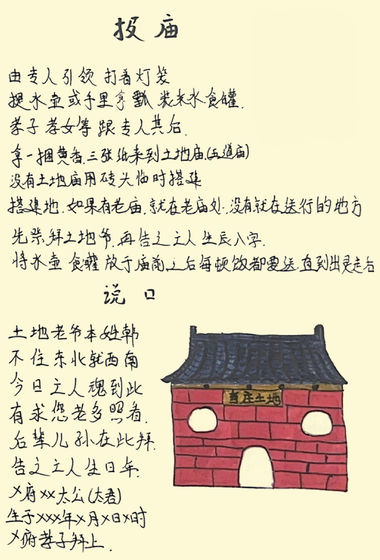 报庙
由专人引领 打着灯笼
提水壶或手里拿瓢 装米水食罐.
孝子孝女等跟专人其后.
拿一捆黄香.三张纸来到土地庙.(五道庙)
没有土地庙用砖头临时搭建
搭建地.如果有老庙.就在老庙处.没有就在送行的地方
先祭拜土地爷.再告之亡人生辰八字.
将水壶 食罐放于庙前.之后每顿饭都要送.直到出灵走后
说口
土地老爷本姓韩
不住东北就西南
今日亡人魂到此
有求您老多照看.
后辈儿孙在此拜.
告之亡人生日年.
X府XX太公(太君)
生于XXX年X月X日X时
X府孝子拜上.
当庄土地